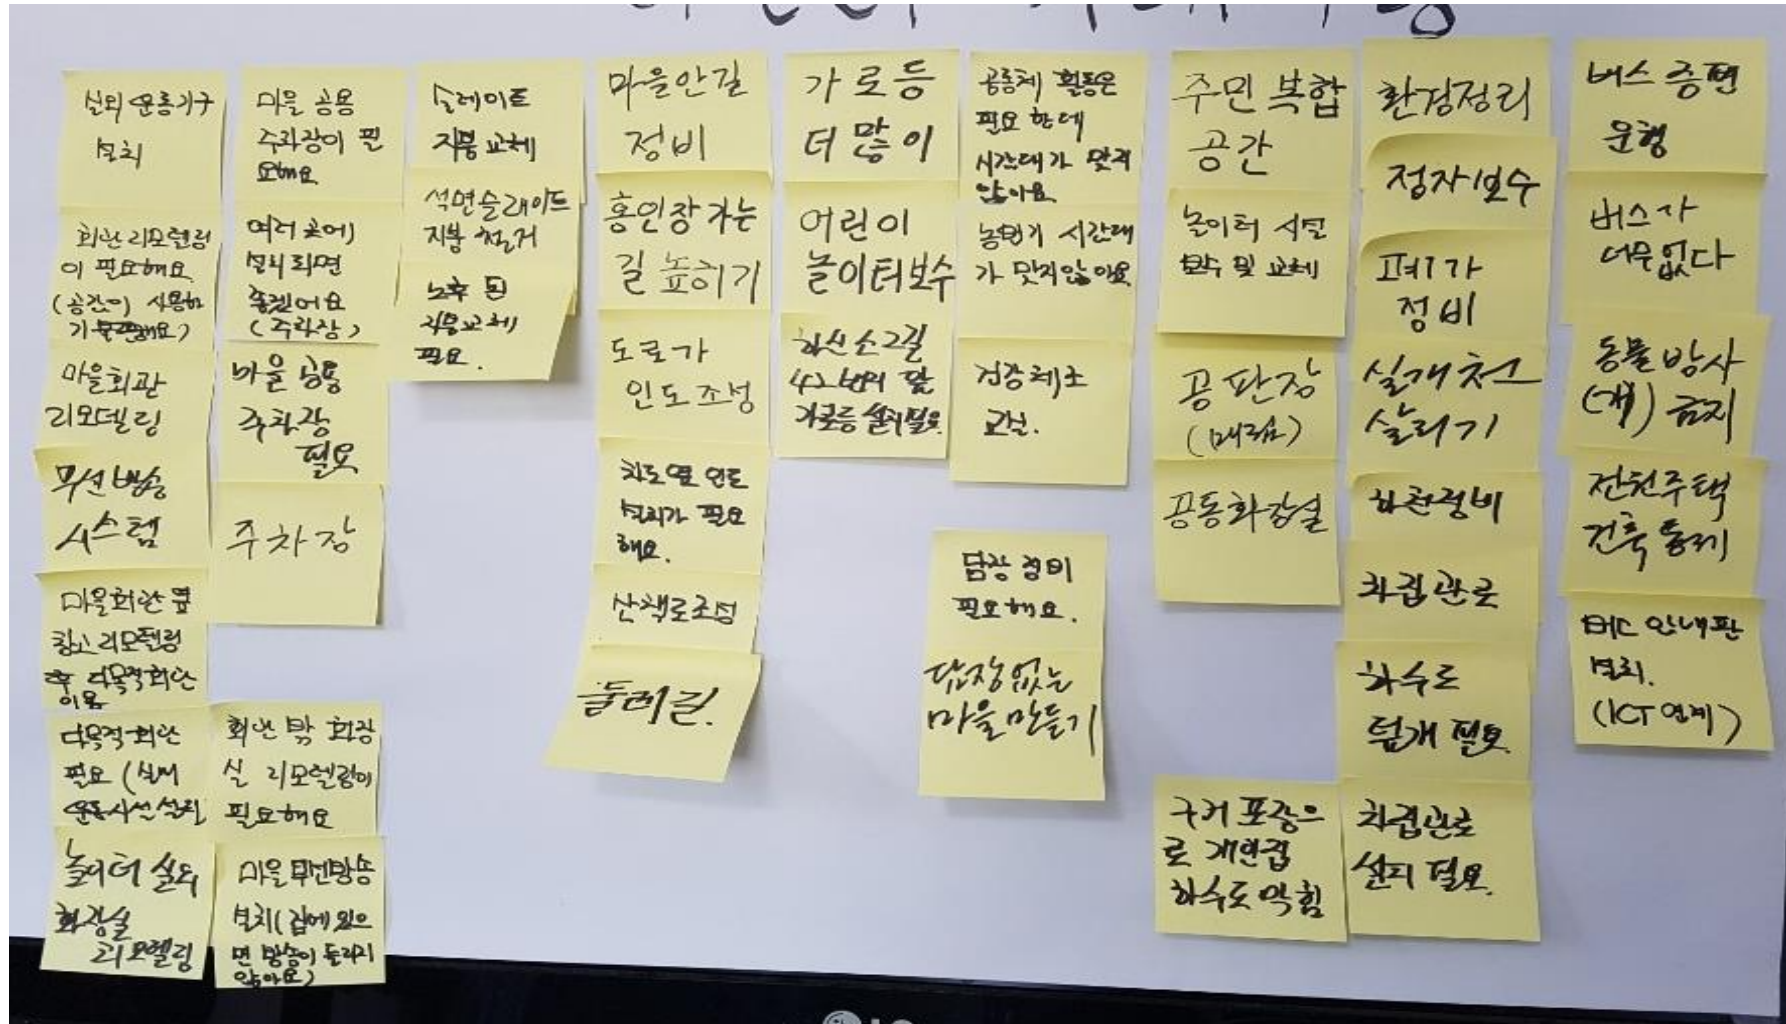 실외 운동기구
설치
회관 리모델링
이 필요해요
(공간이 사용하
기
마을회관
리모델링
무선방송
시스템
마을회관 옆
창고 리모델링
후 다목적회관
이용
다목적회관
필요 (실내
운동시설 설치
놀이터 실외
화장실
리모델링
마을 공용
주차장이 필
요해요
여러 곳에
설치되면
좋겠어요
(주차장)
마을 공용
주차장
필요
주차장
회관 밖 화장
실 리모델링이
필요해요
마을 무선방송
설치(집에 있으
면 방송이 들리지
않아요)
슬레이트
지붕교체
석면슬레이드
지붕 철거
노후 된
지붕교체
필요.
마을안길
정비
홍인장 가는
길 높히기
도로가
인도조성
차도옆 인도
설치가 필요
해요.
산책로조성
둘레길.
가로등
더 많이
어린이
놀이터보수
화산소그길
42 앞
가로등 설치필요
공동체 활동은
필요한데
시간대가 맞지
않아요
농번기 시간대
가 맞지않아요
건강체조
교실.
담장 정비
필요해요.
담장없는
마을만들기
주민복합
공간
놀이터 시설
보수 및 교체
공판장
(매점)
공동화합실
구거 포장으
로 개인집
하수도 막힘
환경정리
정자보수
폐가
정비
실개천
살리기
하천정비
차집관로
하수도
덮개 필요
차집관로
설치 필요.
버스 증편
운행
버스가
너무없다
동물방사
(개) 금지
전원주택
건축 통제
버스 안내판
설치.
(ICT 연계)
LG